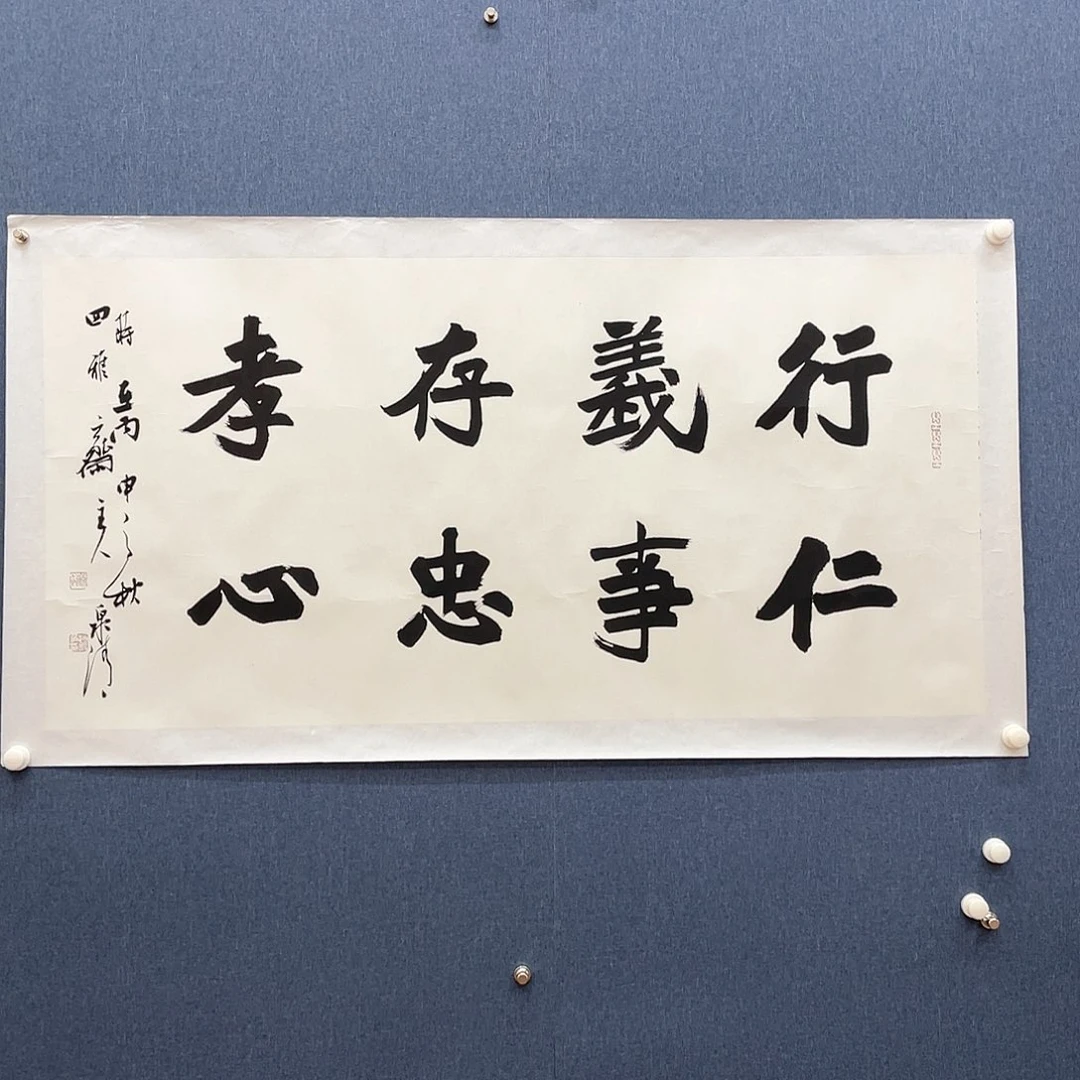 行仁
義事
存忠
孝心
時在丙申之秋泉
四雅齋主人